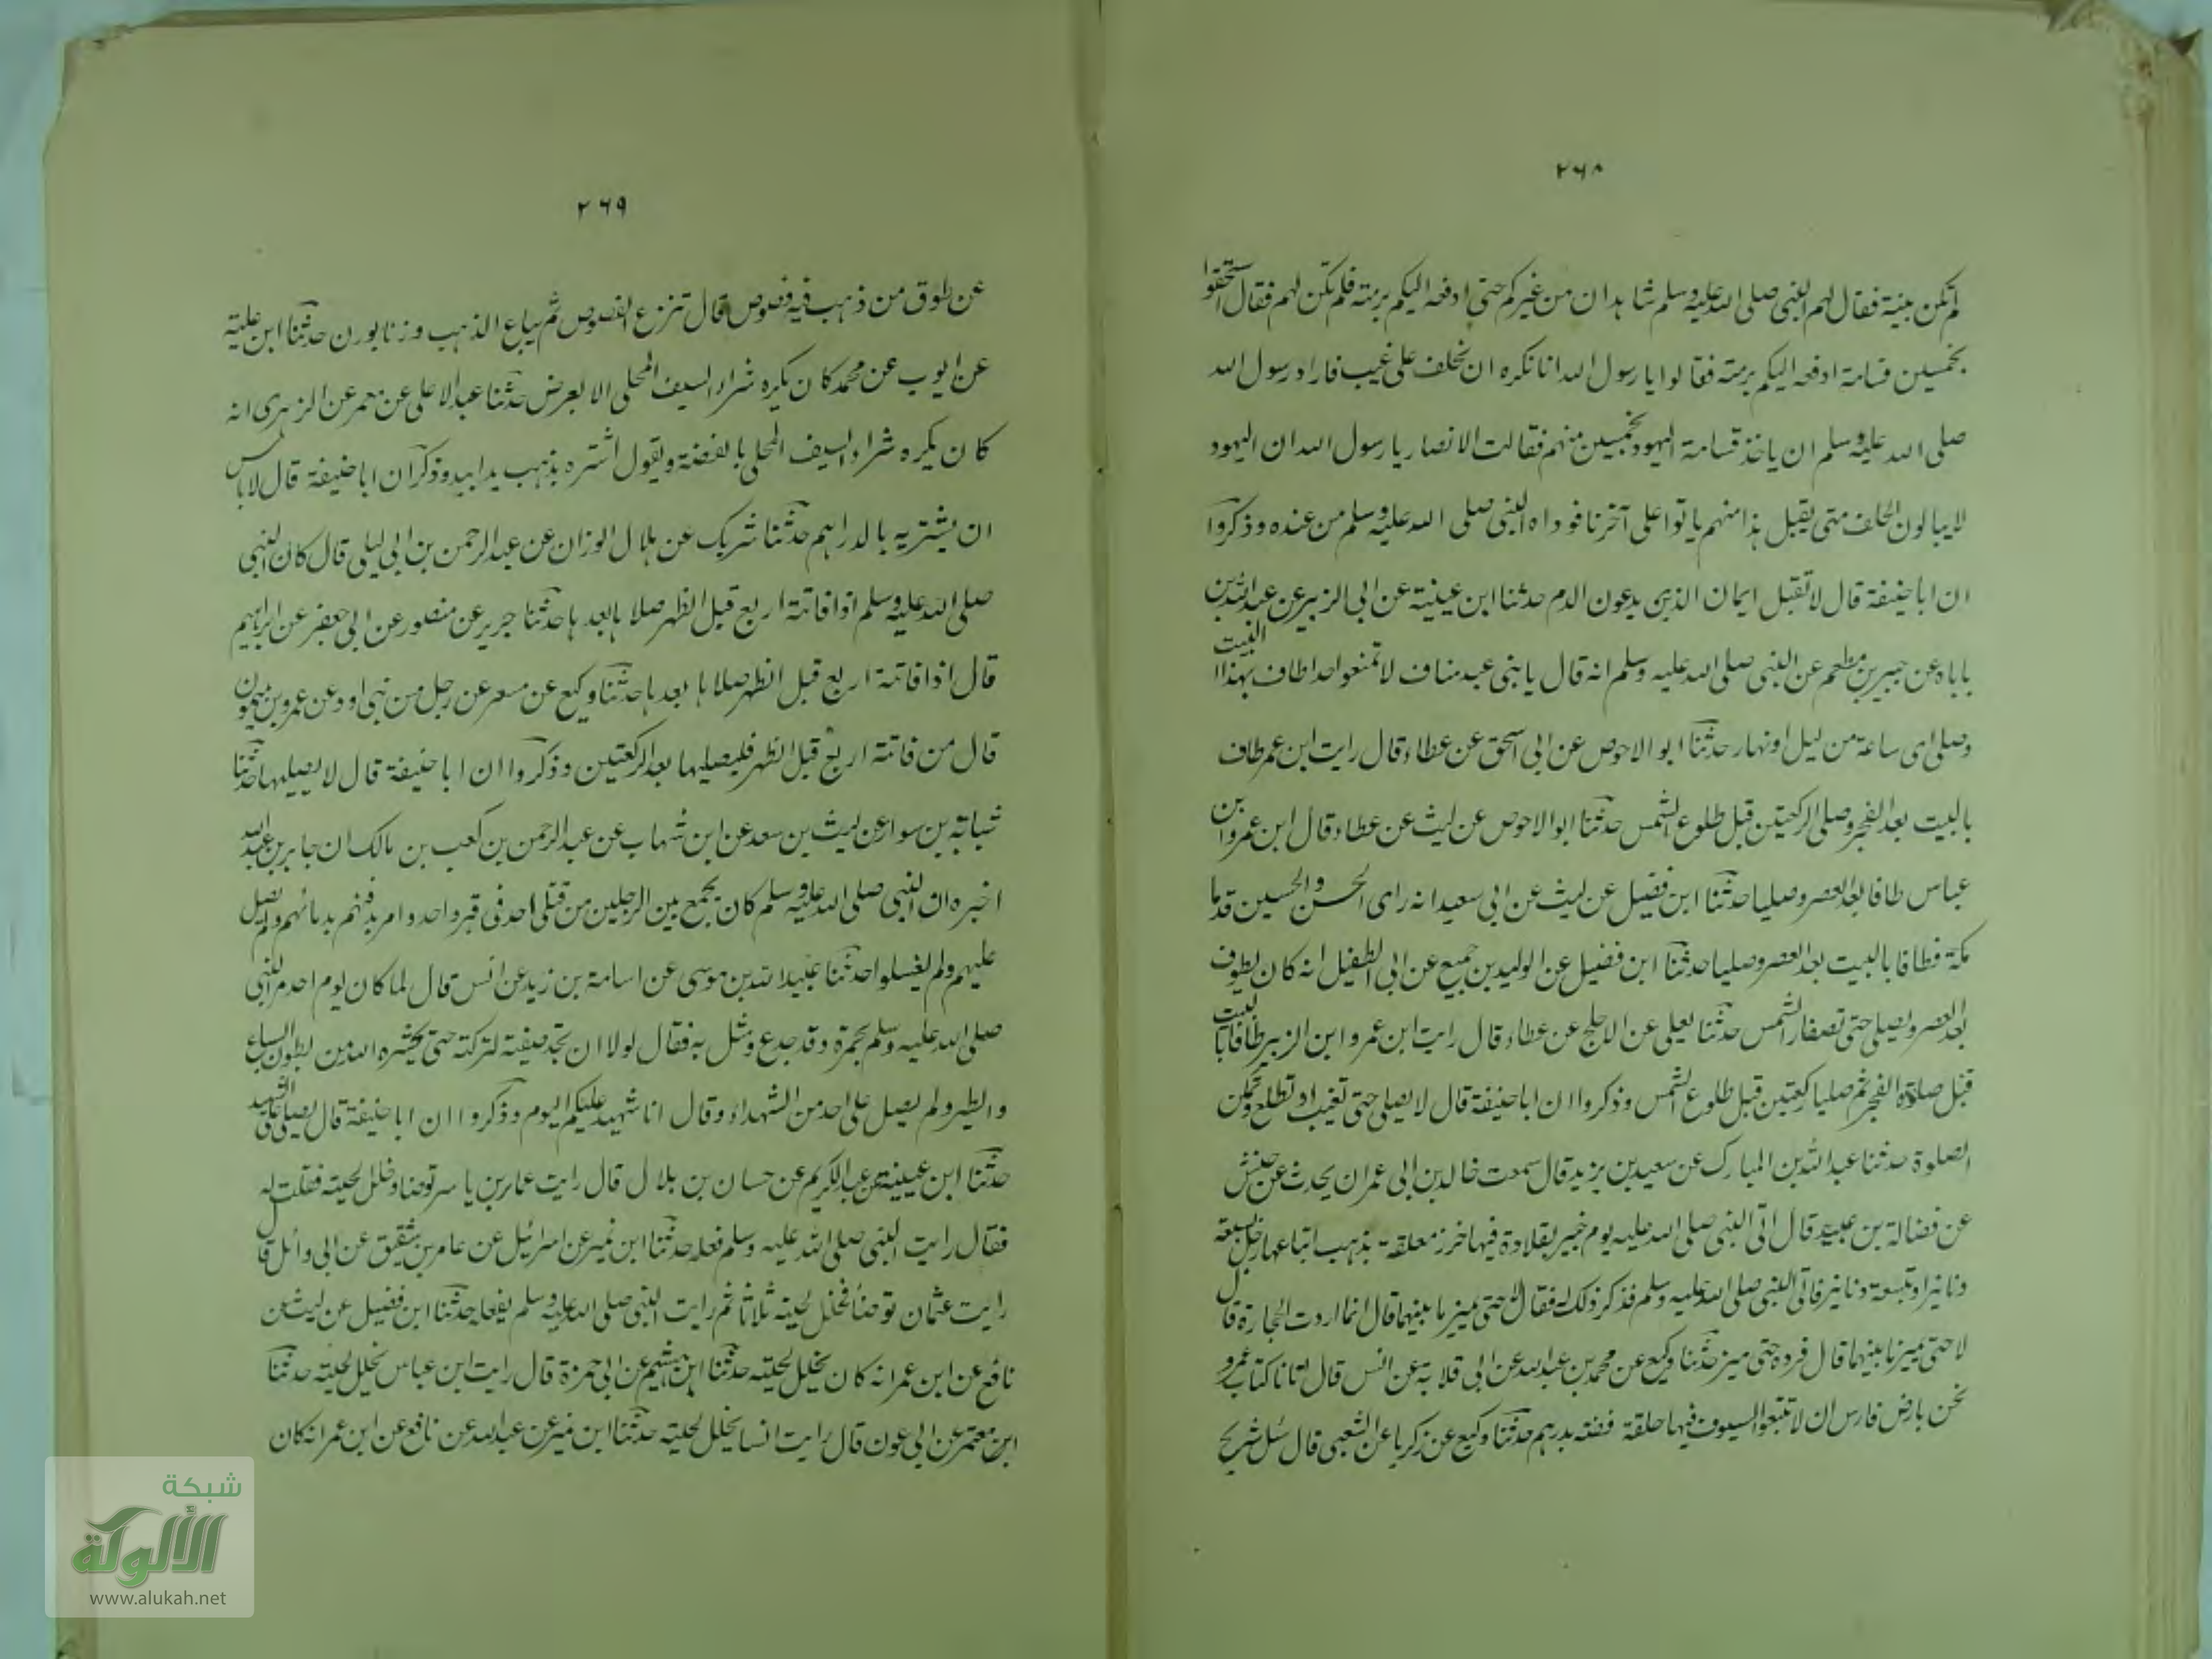 ٢٦٨
لم تكن بينة فقال لهم النبى صلى الله عليه وسلم شاهدان من غيركم حتى ادفعه اليكم برمته فلم تكن لهم فقال استحقوا
بخمسين قسامة ادفعه اليكم برمته فقالوا يا رسول الله انا نكره ان نحلف على غيب فاراد رسول الله
صلى الله عليه وسلم ان ياخذ قسامة اليهود بخمسين منهم فقالت الانصار يا رسول الله ان اليهود
لا يبالون الحلف متى يقبل هذا منهم ياتوا على آخرنا فوداه النبى صلى الله عليه وسلم من عنده وذكروا
ان ابا حنيفة قال لا تقبل ايمان الذين يدعون الدم حدثنا ابن عيينة عن ابى الزبير عن عبد الله بن
باباه عن جبير بن مطعم عن النبى صلى الله عليه وسلم انه قال يا بنى عبد مناف لا تمنعوا احدا طاف بهذا البيت
وصلى اى ساعة من ليل او نهار حدثنا ابو الاحوص عن ابى اسحق عن عطاء قال رايت ابن عمر طاف
بالبيت بعد الفجر وصلى الركعتين قبل طلوع الشمس حدثنا ابو الاحوص عن ليث عن عطاء قال ابن عمر وابن
عباس طافا بعد العصر وصليا حدثنا ابن فضيل عن ليث عن ابى سعيد انه راى الحسن والحسين قدما
مكة فطافا بالبيت بعد العصر وصليا حدثنا ابن فضيل عن الوليد بن جميع عن ابى الطفيل انه كان يطوف
بعد العصر ويصلى حتى تصفار الشمس حدثنا يعلى عن الاجلح عن عطاء قال رايت ابن عمر وابن الزبير طافا بالبيت
قبل صلوة الفجر ثم صليا ركعتين قبل طلوع الشمس وذكروا ان ابا حنيفة قال لا يصلى حتى تغيب او تطلع وتمكن
الصلوة حدثنا عبد الله بن المبارك عن سعيد بن يزيد قال سمعت خالد بن ابى عمران يحدث عن حنش
عن فضالة بن عبيد قال اتى النبى صلى الله عليه يوم خيبر بقلادة فيها خرز معلقة بذهب ابتاعها رجل بسبعة
دنانير او بتسعة دنانير فاتى النبى صلى الله عليه وسلم فذكر ذلك له فقال لا حتى تميز ما بينهما قال انما اردت الحجارة قال
لا حتى تميز ما بينهما قال فرده حتى ميز حدثنا وكيع عن محمد بن عبد الله عن ابى قلابة عن انس قال اتانا كتاب عمر و
نحن بارض فارس ان لا تبتعوا السيوف فيها حلقة فضة بدرهم حدثنا وكيع عن زكريا عن الشعبى قال سئل شريح
٢٦٩
عن طوق من ذهب فيه فصوص قال تنزع الفصوص ثم يباع الذهب وزنا بوزن حدثنا ابن علية
عن ايوب عن محمد كان يكره شراء السيف المحلى الا بعرض حدثنا عبد الاعلى عن معمر عن الزهرى انه
كان يكره شراء السيف المحلى بالفضة ويقول اشتره بذهب يدا بيد وذكر ان ابا حنيفة قال لا باس
ان يشتريه بالدراهم حدثنا شريك عن هلال الوزان عن عبد الرحمن بن ابى ليلى قال كان النبى
صلى الله عليه وسلم اذا فاتته اربع قبل الظهر صلاها بعدها حدثنا جرير عن منصور عن ابى جعفر عن ابراهيم
قال اذا فاتته اربع قبل الظهر صلاها بعدها حدثنا وكيع عن مسعر عن رجل من بنى اود عن عمرو بن ميمون
قال من فاتته اربع قبل الظهر فليصليها بعد الركعتين وذكروا ان ابا حنيفة قال لا يصليها حدثنا
شبابة بن سوار عن ليث بن سعد عن ابن شهاب عن عبد الرحمن بن كعب بن مالك ان جابر بن عبد الله
اخبره ان النبى صلى الله عليه وسلم كان يجمع بين الرجلين من قتلى احد فى قبر واحد وامر بدفنهم بدمائهم ولم يصل
عليهم ولم يغسلوا حدثنا عبيد الله بن موسى عن اسامة بن زيد عن انس قال لما كان يوم احد مر النبى
صلى الله عليه وسلم بحمزة وقد جدع ومثل به فقال لولا ان تجد صفية لتركته حتى يحشره الله من بطون السباع
والطير ولم يصل على احد من الشهداء وقال انا شهيد عليكم اليوم وذكروا ان ابا حنيفة قال يصلى على الشهيد
حدثنا ابن عيينة عن عبد الكريم عن حسان بن بلال قال رايت عمار بن ياسر توضا وخلل لحيته فقلت له
فقال رايت النبى صلى الله عليه وسلم فعله حدثنا ابن نمير عن اسرائيل عن عامر بن شقيق عن ابى وائل قال
رايت عثمان توضا فخلل لحيته ثلاثا ثم رايت النبى صلى الله عليه وسلم يفعله حدثنا ابن فضيل عن ليث عن
نافع عن ابن عمر انه كان يخلل لحيته حدثنا ابن هشيم عن ابى حمزة قال رايت ابن عباس يخلل لحيته حدثنا
ابن معتمر عن ابى عون قال رايت انسا يخلل لحيته حدثنا ابن نمير عن عبد الله عن نافع عن ابن عمر انه كان
شبكة
الألوكة
www.alukah.net